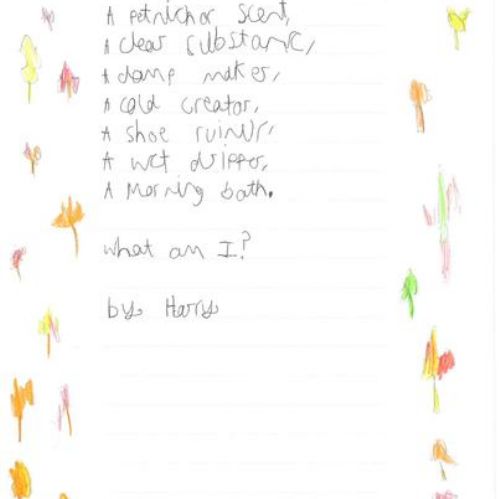 A petrichor scent,
A clear substanc,
A damp maker,
A cold creator,
A shoe ruiner,
A wet dripper,
A Morning bath.
what am I?
by Harry